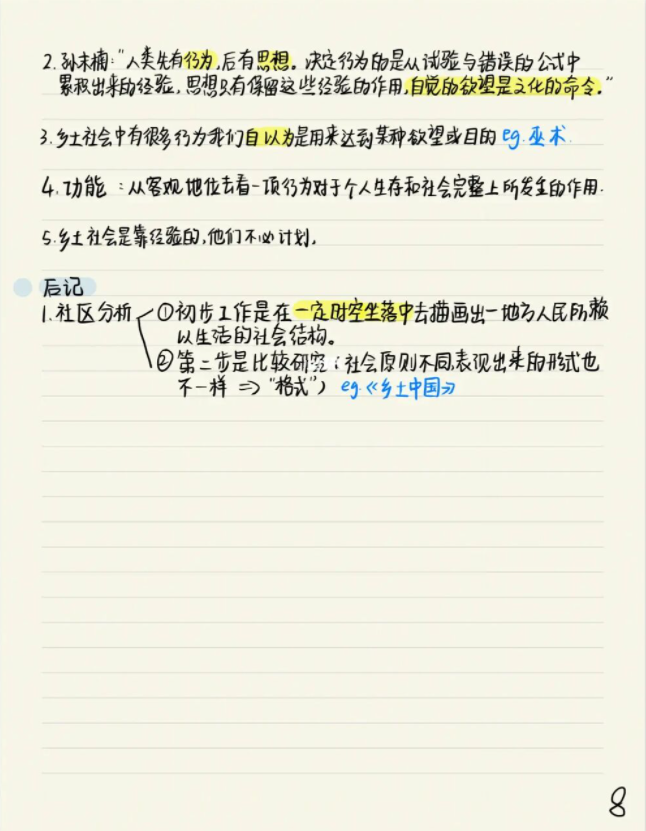 2. 孙末楠:“人类先有行为,后有思想。决定行为的是从试验与错误的公式中
累积出来的经验,思想只有保留这些经验的作用,自觉的欲望是文化的命令。”
3. 乡土社会中有很多行为我们自以为是用来达到某种欲望或目的 eg. 巫术
4. 功能:从客观地位去看一项行为对于个人生存和社会完整上所发生的作用.
5. 乡土社会是靠经验的,他们不必计划.
后记
1. 社区分析 ①初步工作是在一定时空坐落中去描画出一地方人民所赖
以生活的社会结构。
②第二步是比较研究(社会原则不同,表现出来的形式也
不一样 => “格式”) eg.《乡土中国》
8